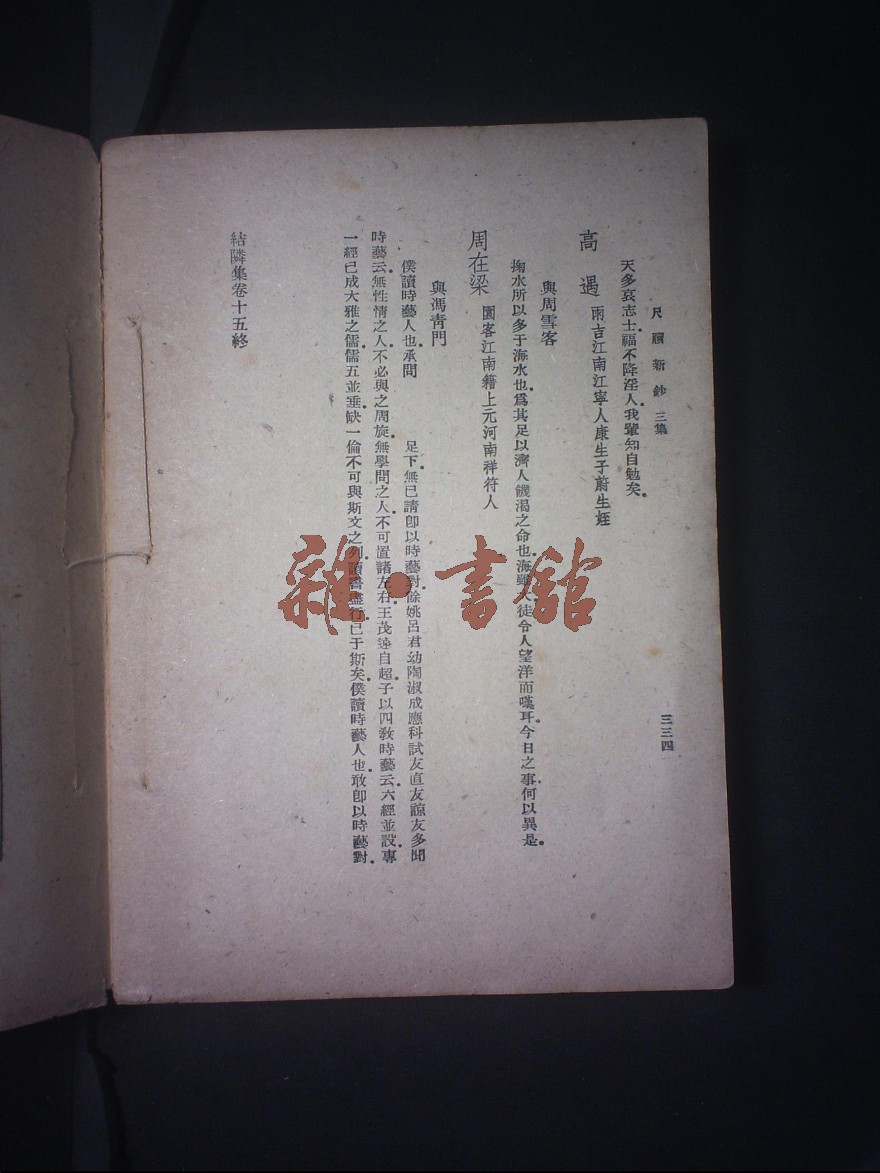 尺牘新鈔 三集
三三四
天多哀志士福不降淫人我輩知自勉矣。
高遇 雨吉江南江寧人康生子蔚生姪
與周雪客
掬水所以多于海水也爲其足以濟人饑渴之命也海雖大徒令人望洋而嘆耳今日之事何以異是。
周在梁 園客江南籍上元河南祥符人
與馮青門
僕讀時藝人也承問 足下無已請卽以時藝對餘姚呂君幼陶淑成應科試友直友諒友多聞
時藝云無性情之人不必與之周旋無學問之人不可置諸左右王茂遠自超子以四教時藝云六經並設專
一經已成大雅之儒儒五並垂缺一倫不可與斯文之列讀書盡行已于斯矣僕讀時藝人也敢卽以時藝對。
結隣集卷十五終
雜·書館